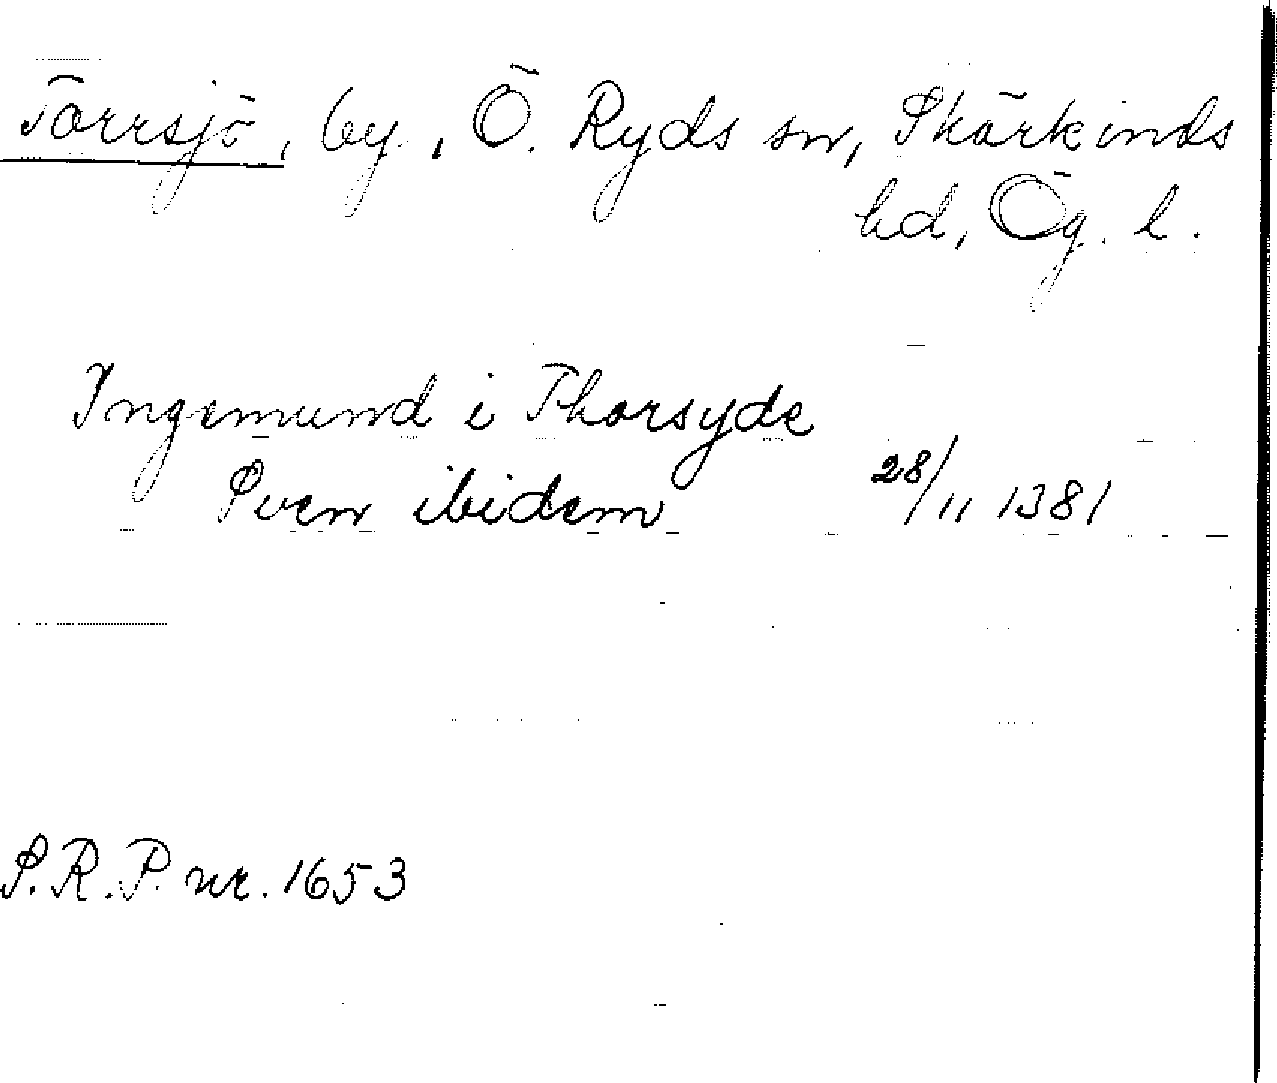 Torrsjö, by, Ö. Ryds sn, Skärkinds
hd, Ög. l.
Ingemund i Thorsyde
Sven ibidem 28/11 1381
S.R.P. nr. 1653